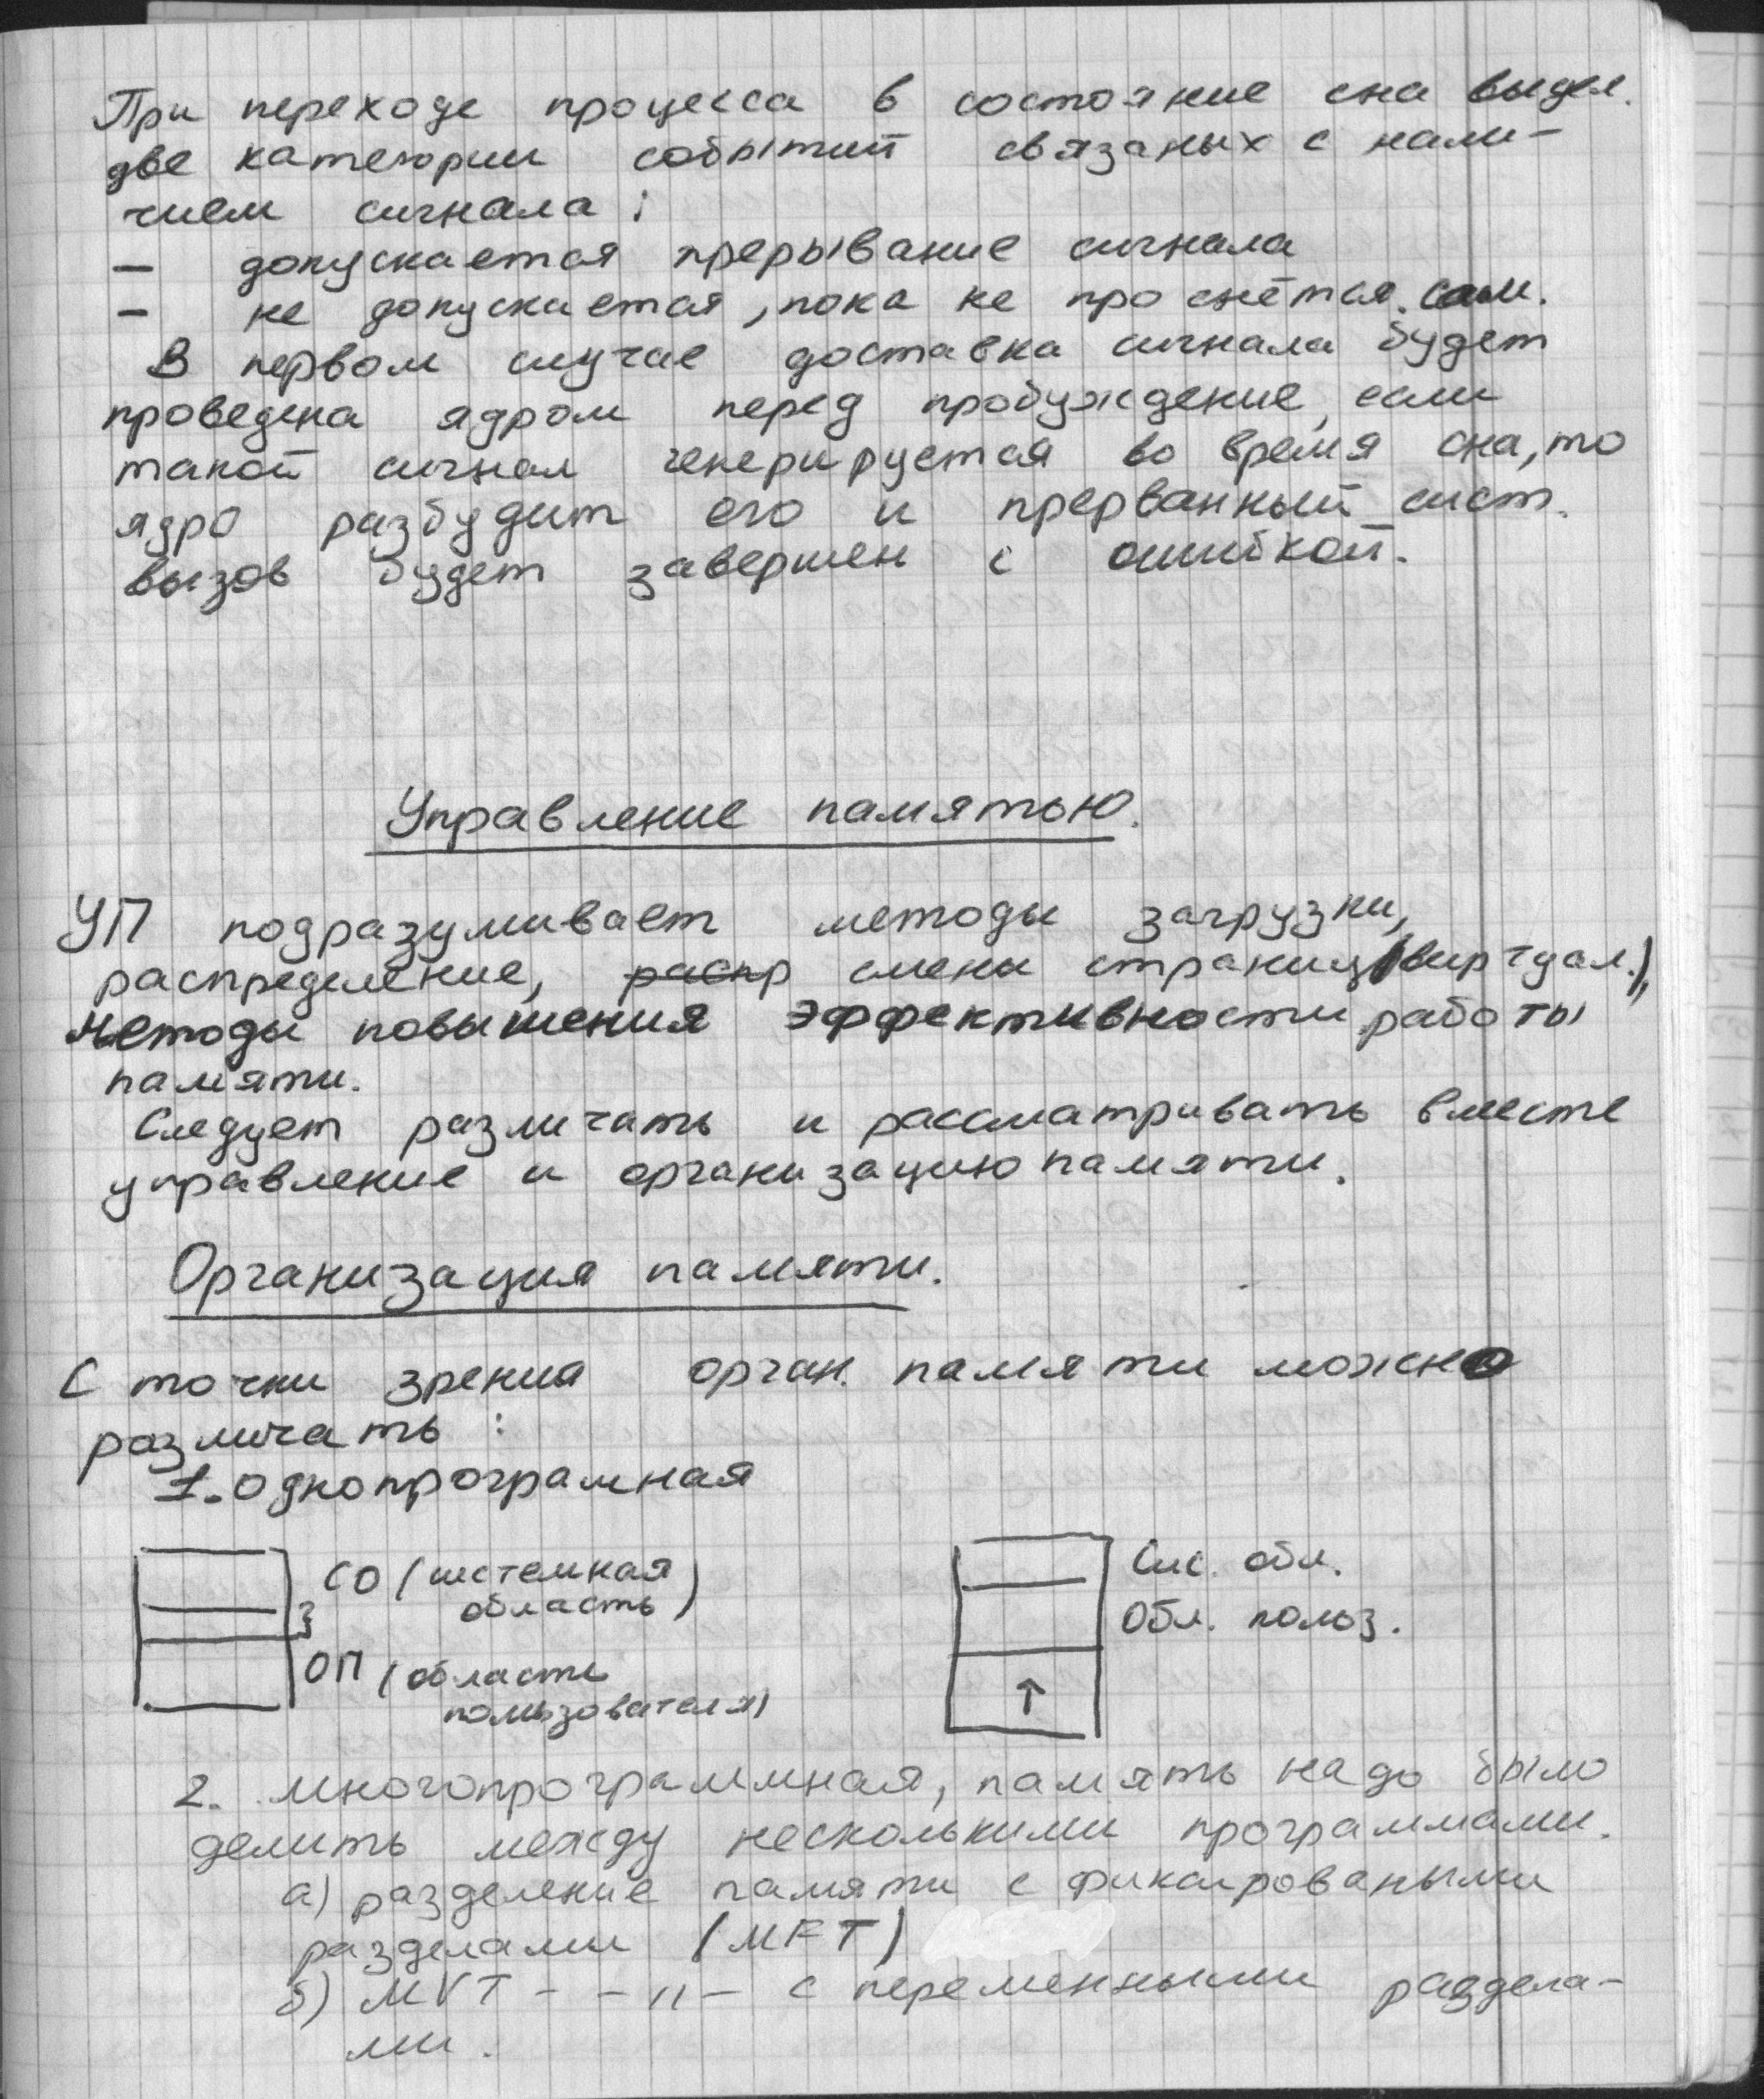 При переходе процесса в состояние сна выдел.
две категории событий связаных с нали-
чием сигнала:
— допускается прерывание сигнала
— не допускается, пока не проснётся сам.
В первом случае доставка сигнала будет
проведена ядром перед пробуждение, если
такой сигнал генерируется во время сна, то
ядро разбудит его и прерванный сист.
вызов будет завершен с ошибкой.
Управление памятью.
УП подразумивает методы загрузки,
распределение, распр смены страниц (виртуал.),
методы повышения эффективности работы
памяти.
Следует различать и рассматривать вместе
управление и организацию памяти.
Организация памяти.
С точки зрения орган. памяти можно
различать:
1. однопрограмная
СО (системная
область)
ОП (область
пользователя)
Сис. обл.
Обл. польз.
2. многопрограммная, память надо было
делить между несколькими программами.
а) разделение памяти с фиксироваными
разделами (MFT)
б) MVT - - " - с переменными раздела-
ми.